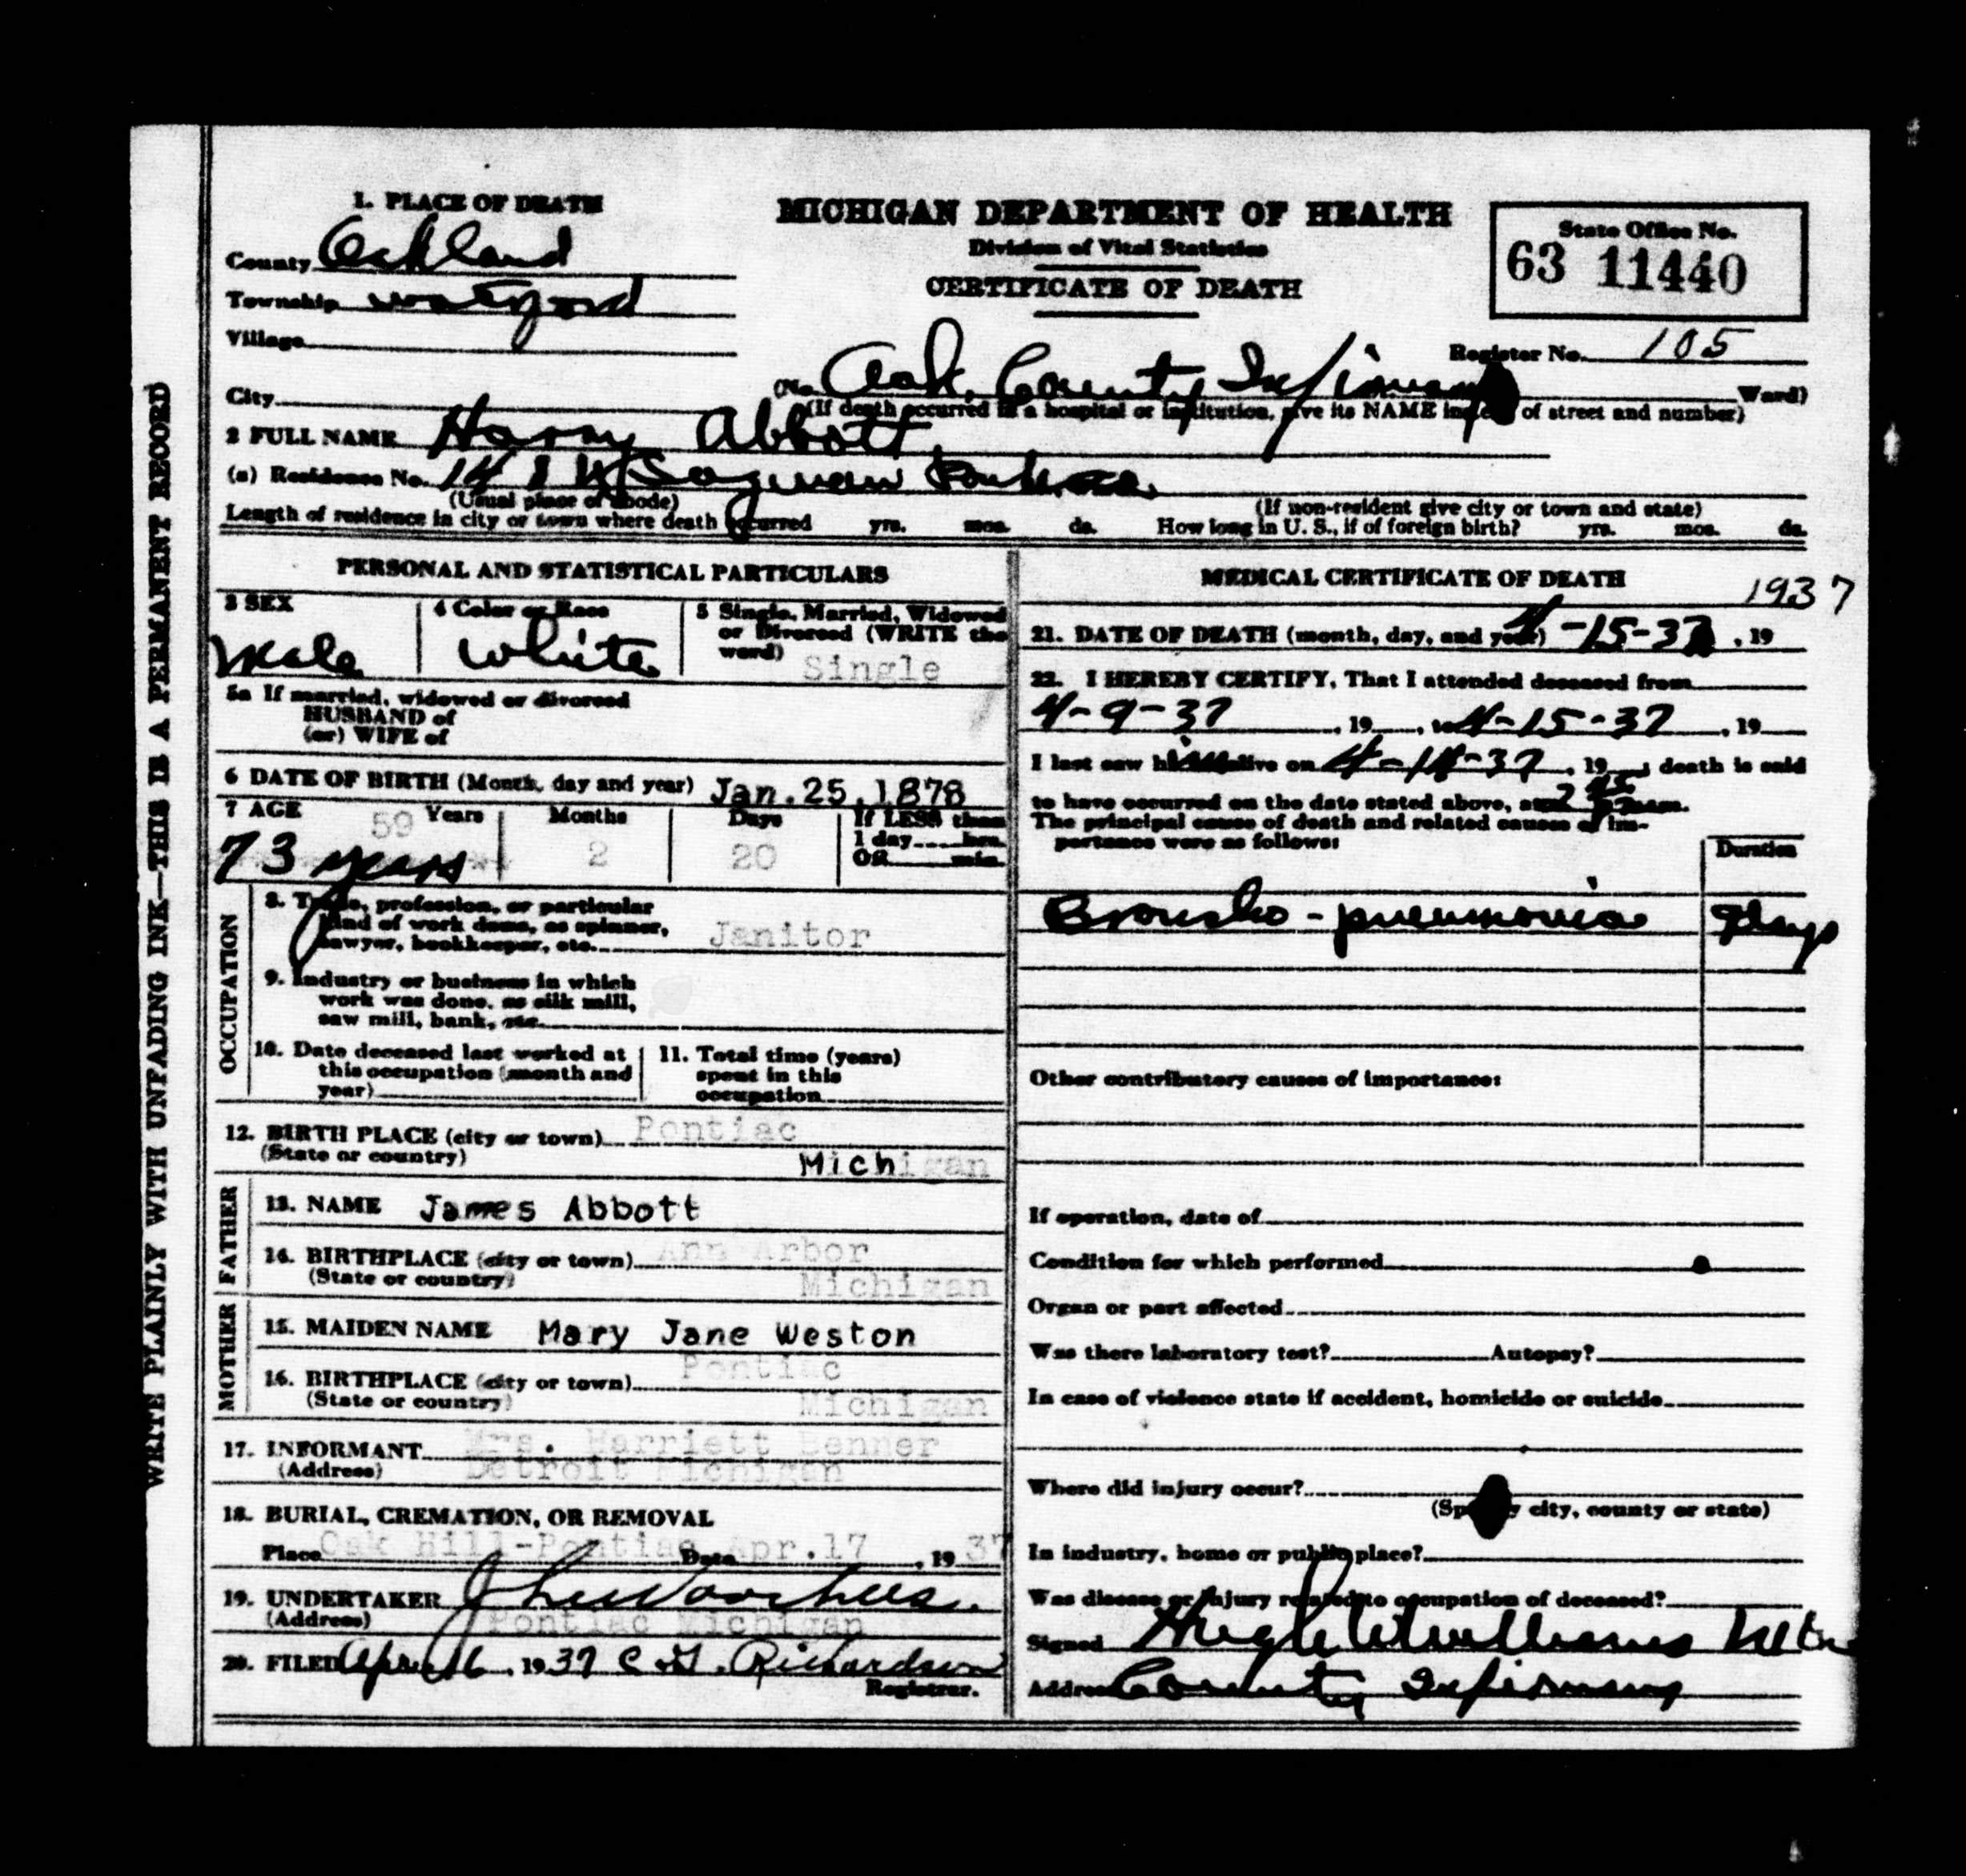 WRITE PLAINLY WITH UNFADING INK—THIS IS A PERMANENT RECORD
1. PLACE OF DEATH
MICHIGAN DEPARTMENT OF HEALTH
Division of Vital Statistics
CERTIFICATE OF DEATH
State Office No.
63 11440
County Oakland
Township Waterford
Village
Register No. 105
City (No. Oak. County Infirmary Ward)
(If death occurred in a hospital or institution, give its NAME instead of street and number)
2 FULL NAME Harry Abbott
(a) Residence No. Saginaw Pontiac
(Usual place of abode) (If non-resident give city or town and state)
Length of residence in city or town where death occurred yrs. mos. ds. How long in U. S., if of foreign birth? yrs. mos. ds.
PERSONAL AND STATISTICAL PARTICULARS
3 SEX
Male
4 Color or Race
White
5 Single, Married, Widowed
or Divorced (WRITE the
word) Single
5a If married, widowed or divorced
HUSBAND of
(or) WIFE of
6 DATE OF BIRTH (Month, day and year) Jan. 25, 1878
7 AGE 59 Years Months Days If LESS than
1 day hrs.
73 years 2 20 OR min.
OCCUPATION
8. Trade, profession, or particular
kind of work done, as spinner,
sawyer, bookkeeper, etc. Janitor
9. Industry or business in which
work was done, as silk mill,
saw mill, bank, etc.
10. Date deceased last worked at
this occupation (month and
year)
11. Total time (years)
spent in this
occupation
12. BIRTH PLACE (city or town) Pontiac
(State or country) Michigan
FATHER
13. NAME James Abbott
14. BIRTHPLACE (city or town) Ann Arbor
(State or country) Michigan
MOTHER
15. MAIDEN NAME Mary Jane Weston
16. BIRTHPLACE (city or town) Pontiac
(State or country) Michigan
17. INFORMANT Mrs. Harriett Benner
(Address) Detroit Michigan
18. BURIAL, CREMATION, OR REMOVAL
Place Oak Hill-Pontiac Date Apr.17, 1937
19. UNDERTAKER Voorhees
(Address) Pontiac Michigan
20. FILED Apr. 16, 1937 Richardson
Registrar.
MEDICAL CERTIFICATE OF DEATH
1937
21. DATE OF DEATH (month, day, and year) 4-15-37, 19
22. I HEREBY CERTIFY, That I attended deceased from
4-9-37, 19 , to 4-15-37, 19
I last saw him alive on 4-14-37, 19 ; death is said
to have occurred on the date stated above, at m.
The principal cause of death and related causes of im-
portance were as follows:
Duration
Broncho-pneumonia days
Other contributory causes of importance:
If operation, date of
Condition for which performed
Organ or part affected
Was there laboratory test? Autopsy?
In case of violence state if accident, homicide or suicide
Where did injury occur?
(Specify city, county or state)
In industry, home or public place?
Was disease or injury related to occupation of deceased?
Signed Hugh Williams
Address County Infirmary